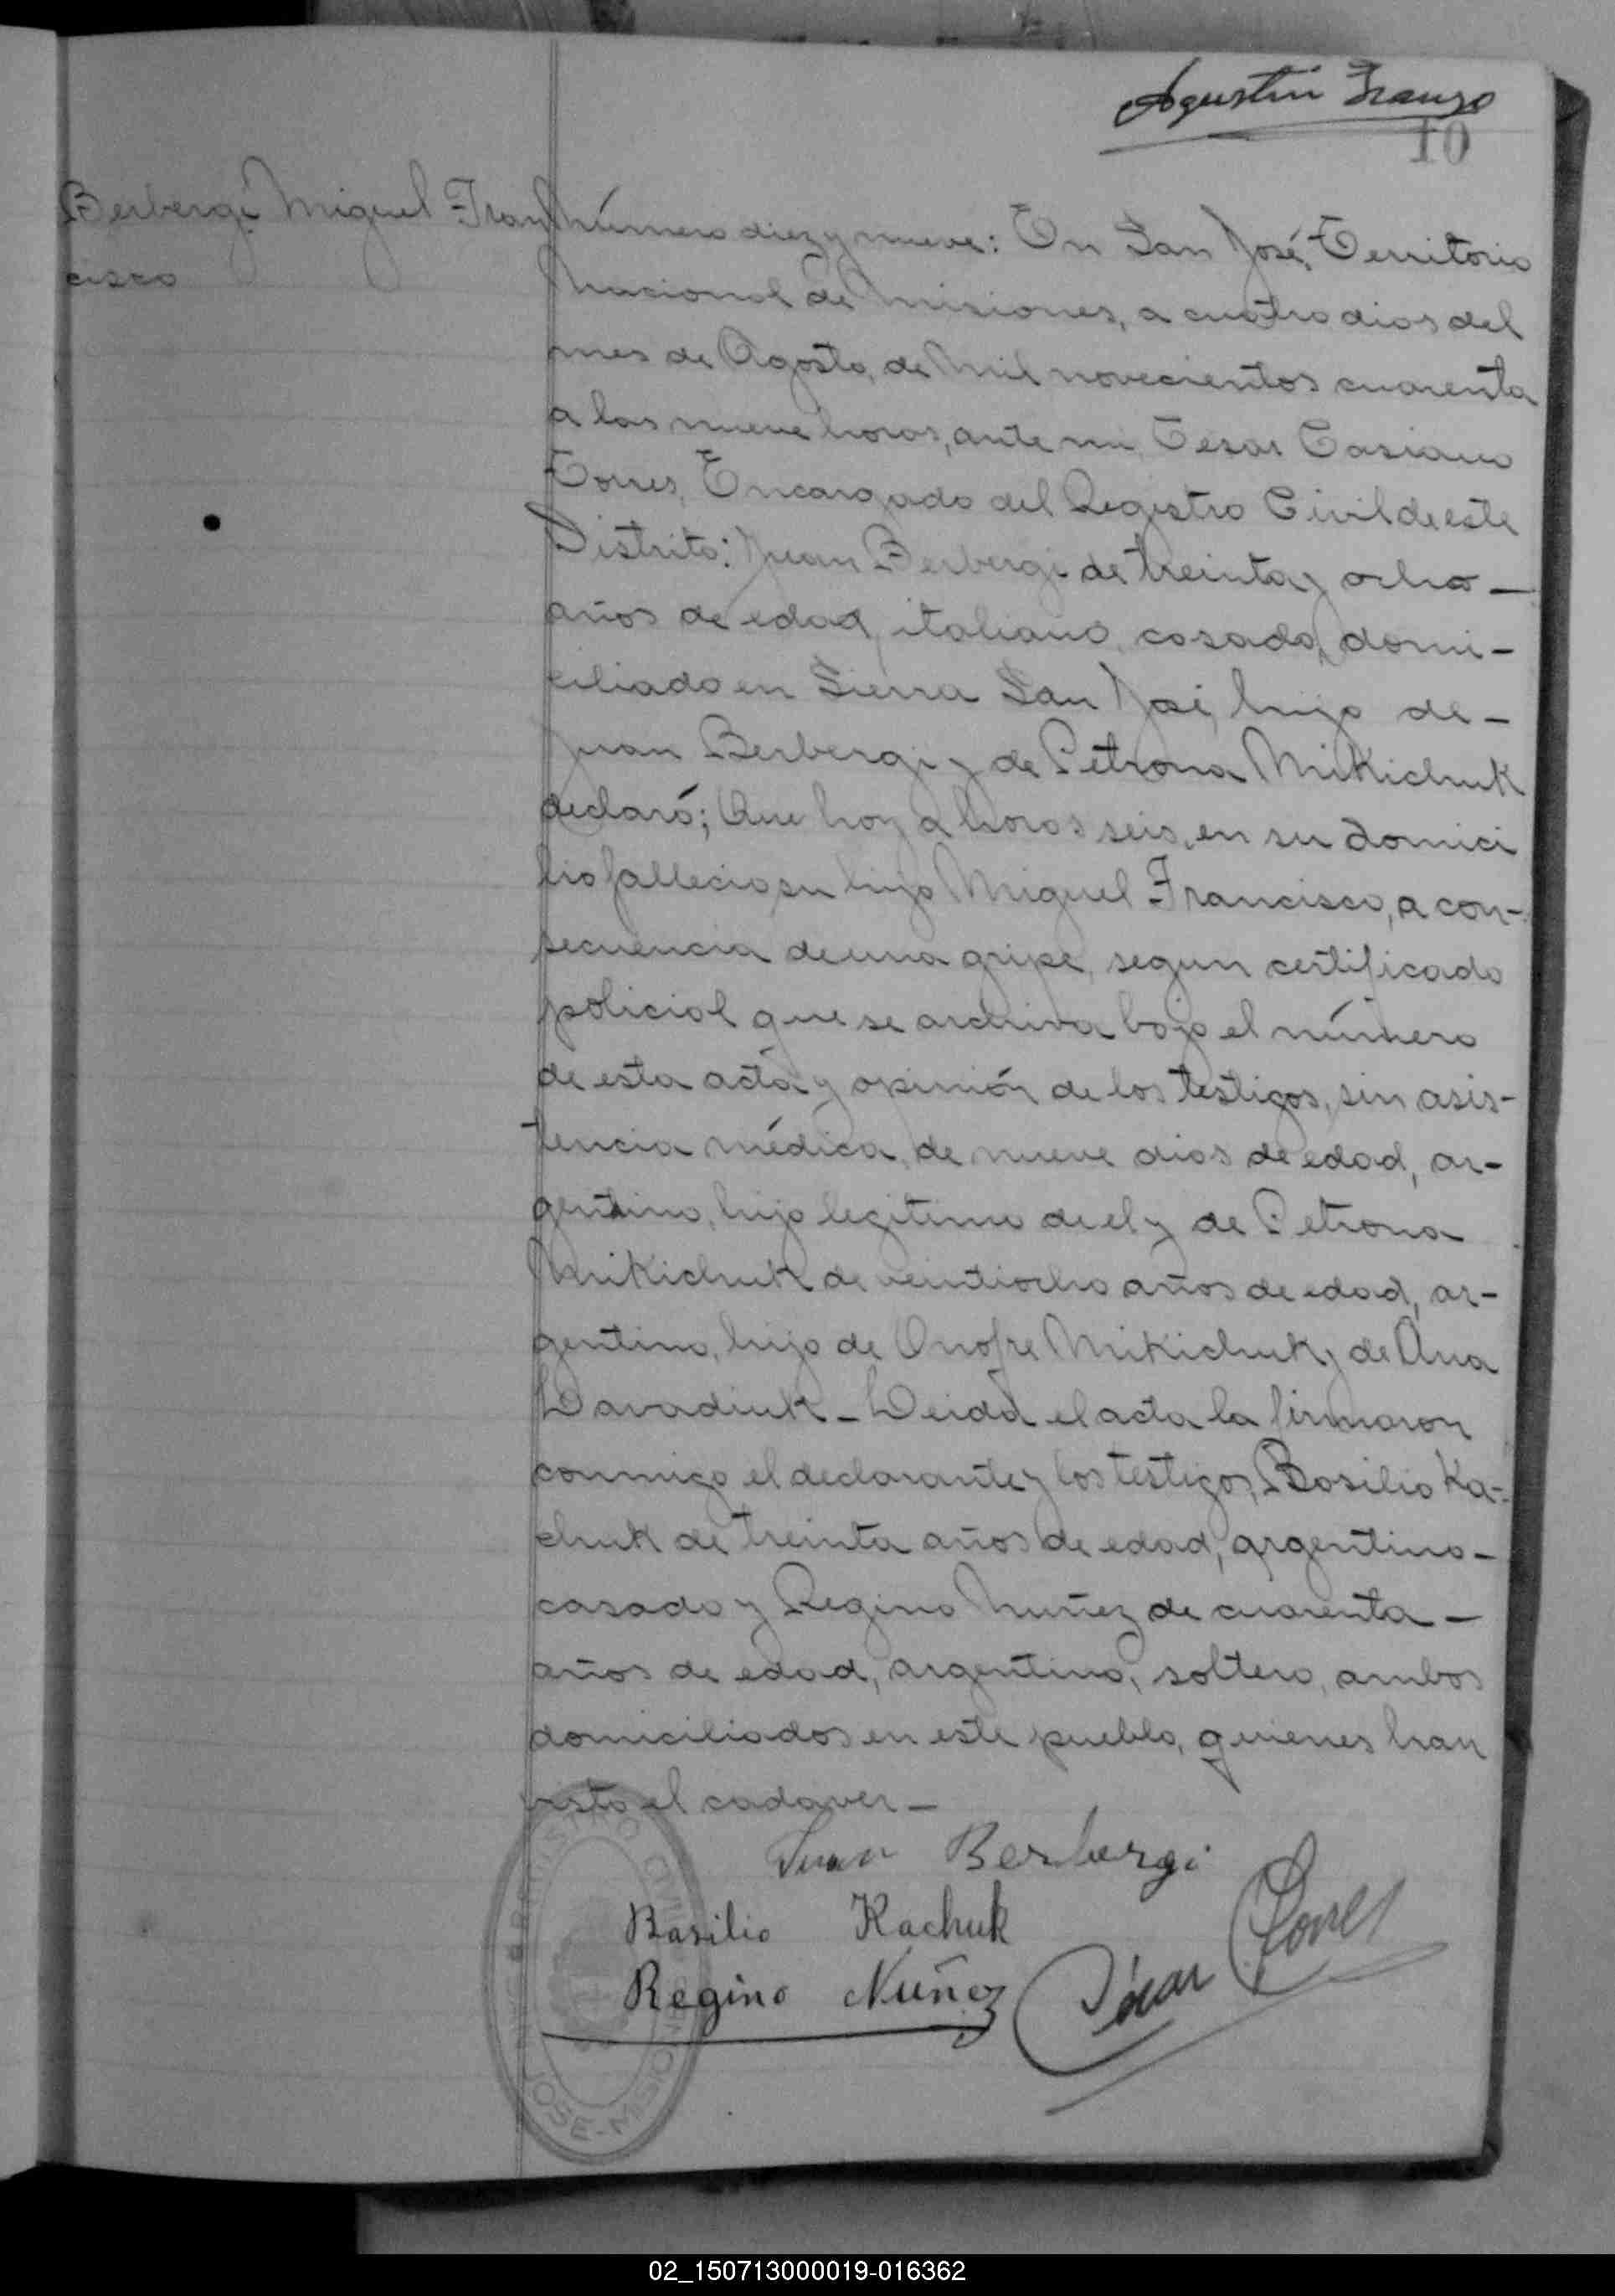 Agustin Franzo
10
Berbergi Miguel Fran
cisco
Número diez y nueve: En San José, Territorio
Nacional de Misiones, a cuatro dias del
mes de Agosto, de Mil novecientos cuarenta
a las nueve horas, ante mi Cesar Casiano
Torres, Encargado del Registro Civil de este
Distrito: Juan Berbergi de treinta y ocho —
años de edad, italiano, casado, domi-
ciliado en Sierra San José, hijo de -
Juan Berbergi y de Petrona Mikichuk
declaró; Que hoy a horas seis, en su domici
lio fallecio su hijo Miguel Francisco, a con-
secuencia de una gripe, segun certificado
policial que se archiva bajo el número
de esta acta y opinión de los testigos, sin asis-
tencia médica, de nueve dias de edad, ar-
gentino, hijo legitimo de el y de Petrona
Mikichuk de veintiocho años de edad, ar-
gentina, hija de Onofre Mikichuk y de Ana
Davadiuk - Leida el acta la firmaron
conmigo el declarante y los testigos, Basilio Ka-
chuk de treinta años de edad, argentino -
casado y Regino Nuñez de cuarenta —
años de edad, argentino, soltero, ambos
domiciliados en este pueblo, quienes han
visto el cadaver —
Juan Berbergi
Basilio Kachuk
Regino Nuñez
Cesar Torres
REGISTRO CIVIL
SAN JOSE - MISIONES
02_150713000019-016362